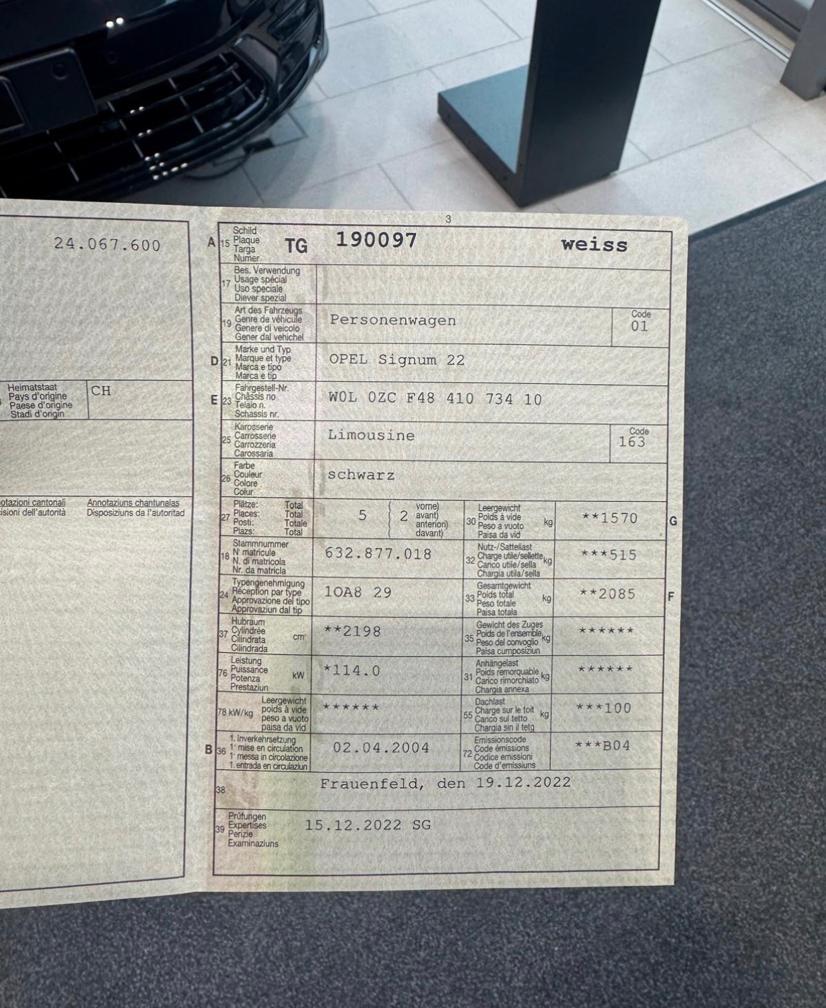 3
24.067.600
Heimatstaat
Pays d'origine
Paese d'origine
Stadi d'origin
CH
otazioni cantonali
isioni dell'autorità
Annotaziuns chantunalas
Disposiziuns da l'autoritad
A 15
Schild
Plaque
Targa
Numer
TG 190097 weiss
17
Bes. Verwendung
Usage spécial
Uso speciale
Diever spezial
19
Art des Fahrzeugs
Genre de véhicule
Genere di veicolo
Gener dal vehichel
Personenwagen
Code
01
D 21
Marke und Typ
Marque et type
Marca e tipo
Marca e tip
OPEL Signum 22
E 23
Fahrgestell-Nr.
Châssis no
Telaio n.
Schassis nr.
W0L 0ZC F48 410 734 10
25
Karosserie
Carrosserie
Carrozzeria
Carossaria
Limousine
Code
163
26
Farbe
Couleur
Colore
Colur
schwarz
27
Plätze: Total
Places: Total
Posti: Totale
Plazs: Total
5
2
vorne)
avant)
anteriori)
davant)
30
Leergewicht
Poids à vide
Peso a vuoto
Paisa da vid
kg
**1570
G
18
Stammnummer
N° matricule
N. di matricola
Nr. da matricla
632.877.018
32
Nutz-/Sattellast
Charge utile/sellette
Carico utile/sella
Chargia utila/sella
kg
***515
24
Typengenehmigung
Réception par type
Approvazione del tipo
Approvaziun dal tip
1OA8 29
33
Gesamtgewicht
Poids total
Peso totale
Paisa totala
kg
**2085
F
37
Hubraum
Cylindrée
Cilindrata
Cilindrada
cm³
**2198
35
Gewicht des Zuges
Poids de l'ensemble
Peso del convoglio
Paisa cumposiziun
kg
******
76
Leistung
Puissance
Potenza
Prestaziun
kW
*114.0
31
Anhängelast
Poids remorquable
Carico rimorchiato
Chargia annexa
kg
******
78 kW/kg
Leergewicht
poids à vide
peso a vuoto
paisa da vid
******
55
Dachlast
Charge sur le toit
Carico sul tetto
Chargia sin il tetg
kg
***100
B 36
1. Inverkehrsetzung
1° mise en circulation
1° messa in circolazione
1. entrada en circulaziun
02.04.2004
72
Emissionscode
Code émissions
Codice emissioni
Code d'emissiuns
***B04
38
Frauenfeld, den 19.12.2022
39
Prüfungen
Expertises
Perizie
Examinaziuns
15.12.2022 SG